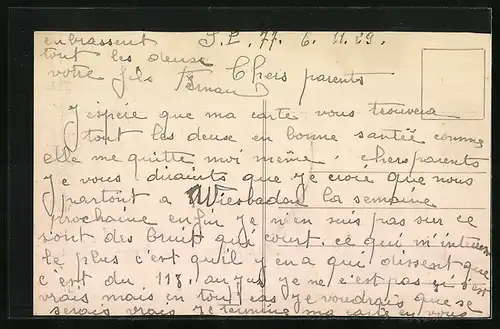 enbrassent S.P. 77. 6. 11. 29.
tout les deuse
votre fils Fernan Chers parents
J espére que ma carte vous trouvera
tout les deuse en bonne santée comme
elle me quitte moi même. chers parents
je vous dirairts que je croie que nous
partont a Wiesbaden la semaine
prochaine enfin je n'en suis pas sur ce
sont des bruit qui court. ce qui m'intéress
le plus c'est qu'il y en a qui dissent que
c'est du 113. au jus je ne c'est pas si s'est
vrais mais en tout cas je voudrais que se
serais vrais je termine ma carte en vous